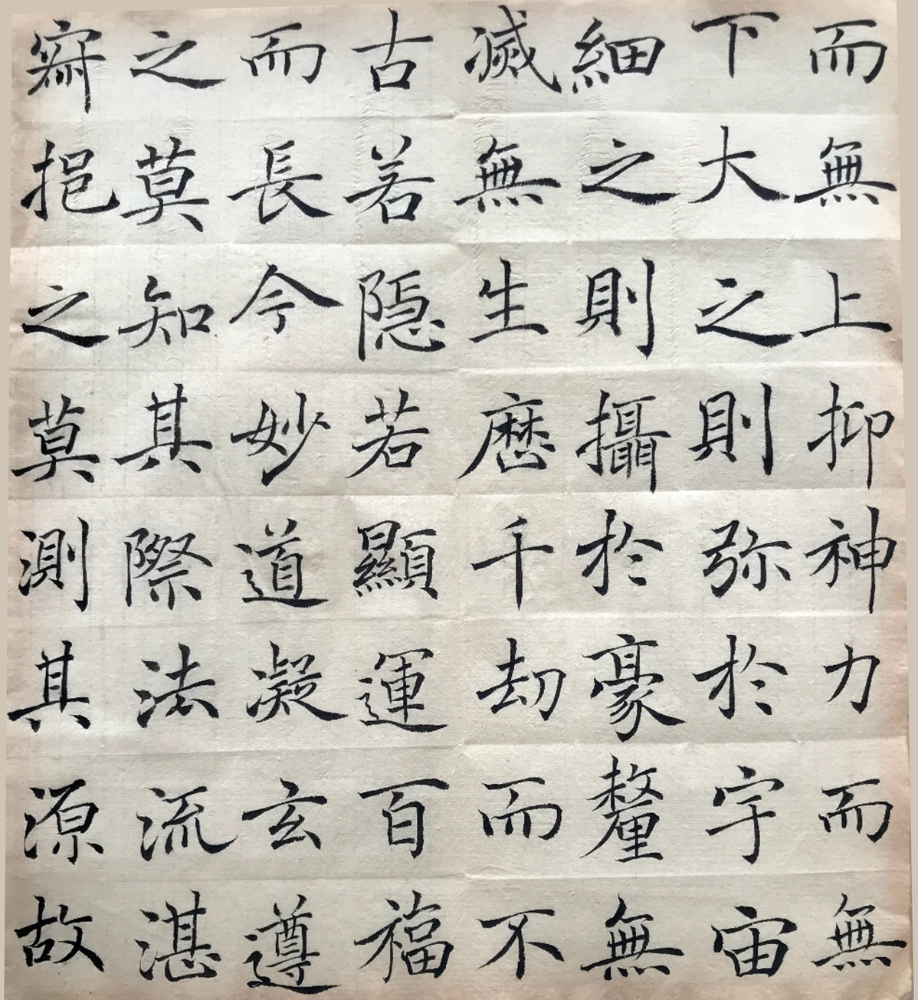 而無上抑神力而無
下大之則弥於宇宙
細之則攝於豪釐無
滅無生歷千劫而不
古若隱若顯運百福
而長今妙道凝玄遵
之莫知其際法流湛
寂挹之莫測其源故